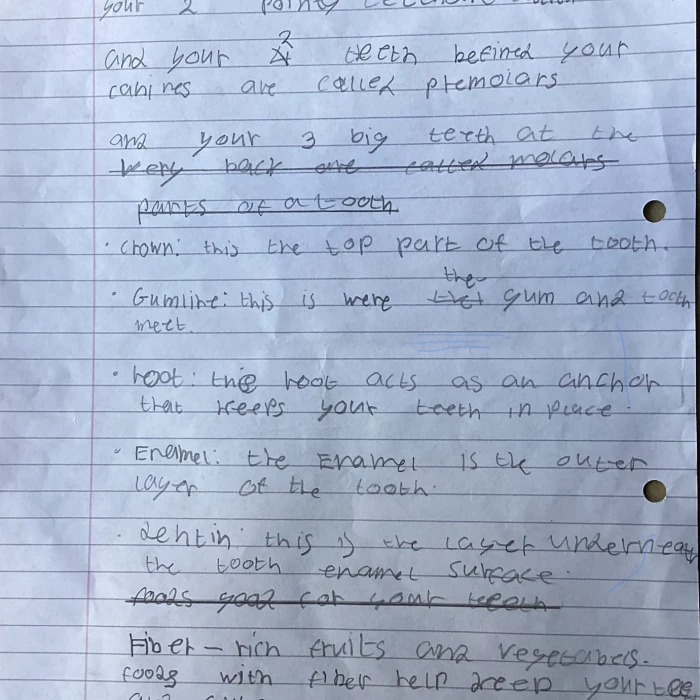 your 2 pointy
2
and your teeth befined your
canines are called premolars
and your 3 big teeth at the
very back are called molars
parts of a tooth
· Crown: this the top part of the tooth.
the
· Gumline: this is were gum and tooth
meet.
· root: the root acts as an anchor
that keeps your teeth in place.
· Enamel: the Enamel is the outer
layer of the tooth.
· dentin: this is the layer underneath
the tooth enamel surface.
foods good for your teeth
Fiber – rich fruits and vegetabels.
foods with fiber help keep your tee